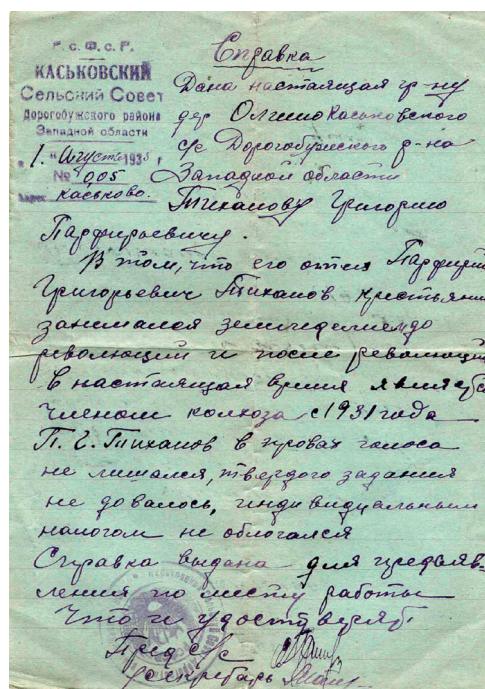 Р.С.Ф.С.Р.
КАСЬКОВСКИЙ
Сельский Совет
Дорогобужского района
Западной области
"1" Августа 1935 г
№ 005
Адрес Каськово.
Справка
Дана настаящая гр-ну
дер Олшино Каськовского
с/с Дорогобужского р-на
Западной области
Тиханову Григорию
Парфирьевичу.
В том, что его отец Парфирий
Григорьевич Тиханов крестьянин
занимался земледелием до
революций и после революций
в настаящая время является
членом колхоза с 1931 года
П.Г. Тиханов в провах голоса
не лишался, твердого задания
не довалось, индивидуальным
налогом не облогался
Справка выдана для предъяв-
ления по месту работы
Что и удостверяет
Пред С/С
Секретарь